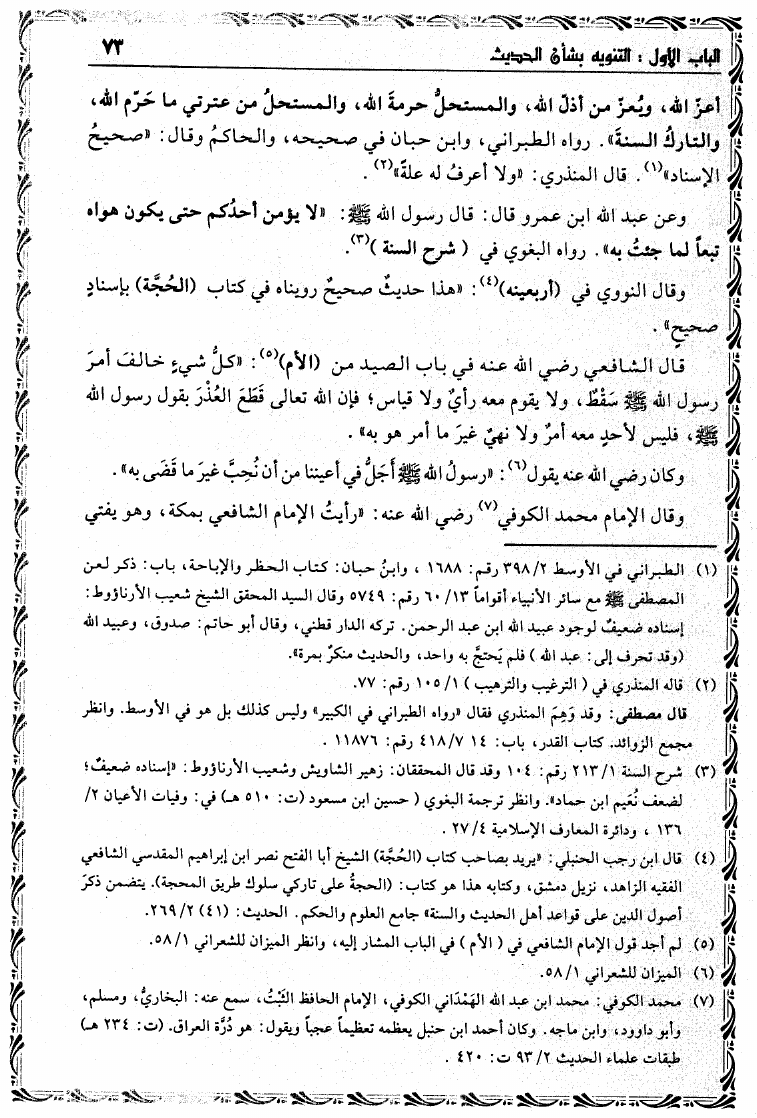 الباب الأول : التنويه بشأن الحديث ٧٣
أعزّ الله، ويُعزّ من أذلّ الله، والمستحلُّ حرمةَ الله، والمستحلُ من عترتي ما حَرّم الله،
والتاركُ السنة». رواه الطبراني، وابن حبان في صحيحه، والحاكمُ وقال: «صحيحُ
الإسناد»(١). قال المنذري: «ولا أعرفُ له علةً»(٢).
وعن عبد الله ابن عمرو قال: قال رسول الله ﷺ: «لا يؤمن أحدُكم حتى يكون هواه
تبعاً لما جئتُ به». رواه البغوي في ( شرح السنة )(٣).
وقال النووي في (أربعينه)(٤): «هذا حديثٌ صحيحٌ رويناه في كتاب (الحُجَّة) بإسنادٍ
صحيحٍ».
قال الشافعي رضي الله عنه في باب الصيد من (الأم)(٥): «كلُّ شيءٍ خالفَ أمرَ
رسول الله ﷺ سَقْطٌ، ولا يقوم معه رأيٌ ولا قياس؛ فإن الله تعالى قَطَعَ العُذْرَ بقول رسول الله
ﷺ، فليس لأحدٍ معه أمرٌ ولا نهيٌ غيرَ ما أمر هو به».
وكان رضي الله عنه يقول(٦): «رسولُ الله ﷺ أَجَلُّ في أعيننا من أن نُحِبَّ غيرَ ما قَضَى به».
وقال الإمام محمد الكوفي(٧) رضي الله عنه: «رأيتُ الإمام الشافعي بمكة، وهو يفتي
(١) الطبراني في الأوسط ٣٩٨/٢ رقم: ١٦٨٨ ، وابنُ حبان: كتاب الحظر والإباحة، باب: ذكر لعن
المصطفى ﷺ مع سائر الأنبياء أقواماً ٦٠/١٣ رقم: ٥٧٤٩ وقال السيد المحقق الشيخ شعيب الأرناؤوط:
إسناده ضعيفٌ لوجود عبيد الله ابن عبد الرحمن. تركه الدار قطني، وقال أبو حاتم: صدوق، وعبيد الله
(وقد تحرف إلى: عبد الله ) فلم يَحتجَّ به واحد، والحديث منكرٌ بمرة».
(٢) قاله المنذري في ( الترغيب والترهيب ) ١٠٥/١ رقم: ٧٧.
قال مصطفى: وقد وَهِمَ المنذري فقال «رواه الطبراني في الكبير» وليس كذلك بل هو في الأوسط. وانظر
مجمع الزوائد. كتاب القدر، باب: ١٤ ٤١٨/٧ رقم: ١١٨٧٦ .
(٣) شرح السنة ٢١٣/١ رقم: ١٠٤ وقد قال المحققان: زهير الشاويش وشعيب الأرناؤوط: «إسناده ضعيفٌ؛
لضعف نُعَيم ابن حماد». وانظر ترجمة البغوي ( حسين ابن مسعود (ت: ٥١٠ هـ) في: وفيات الأعيان ٢/
١٣٦ ، ودائرة المعارف الإسلامية ٢٧/٤ .
(٤) قال ابن رجب الحنبلي: «يريد بصاحب كتاب (الحُجَّة) الشيخ أبا الفتح نصر ابن إبراهيم المقدسي الشافعي
الفقيه الزاهد، نزيل دمشق، وكتابه هذا هو كتاب: (الحجةُ على تاركي سلوك طريق المحجة). يتضمن ذكرَ
أصول الدين على قواعد أهل الحديث والسنة» جامع العلوم والحكم. الحديث: (٤١) ٢٦٩/٢.
(٥) لم أجد قول الإمام الشافعي في ( الأم ) في الباب المشار إليه، وانظر الميزان للشعراني ٥٨/١.
(٦) الميزان للشعراني ٥٨/١.
(٧) محمد الكوفي: محمد ابن عبد الله الهَمْدَاني الكوفي، الإمام الحافظ الثَبْتُ، سمع عنه: البخاريُّ، ومسلم،
وأبو داوود، وابن ماجه. وكان أحمد ابن حنبل يعظمه تعظيماً عجباً ويقول: هو دُرَّة العراق. (ت: ٢٣٤ هـ)
طبقات علماء الحديث ٩٣/٢ ت: ٤٢٠ .